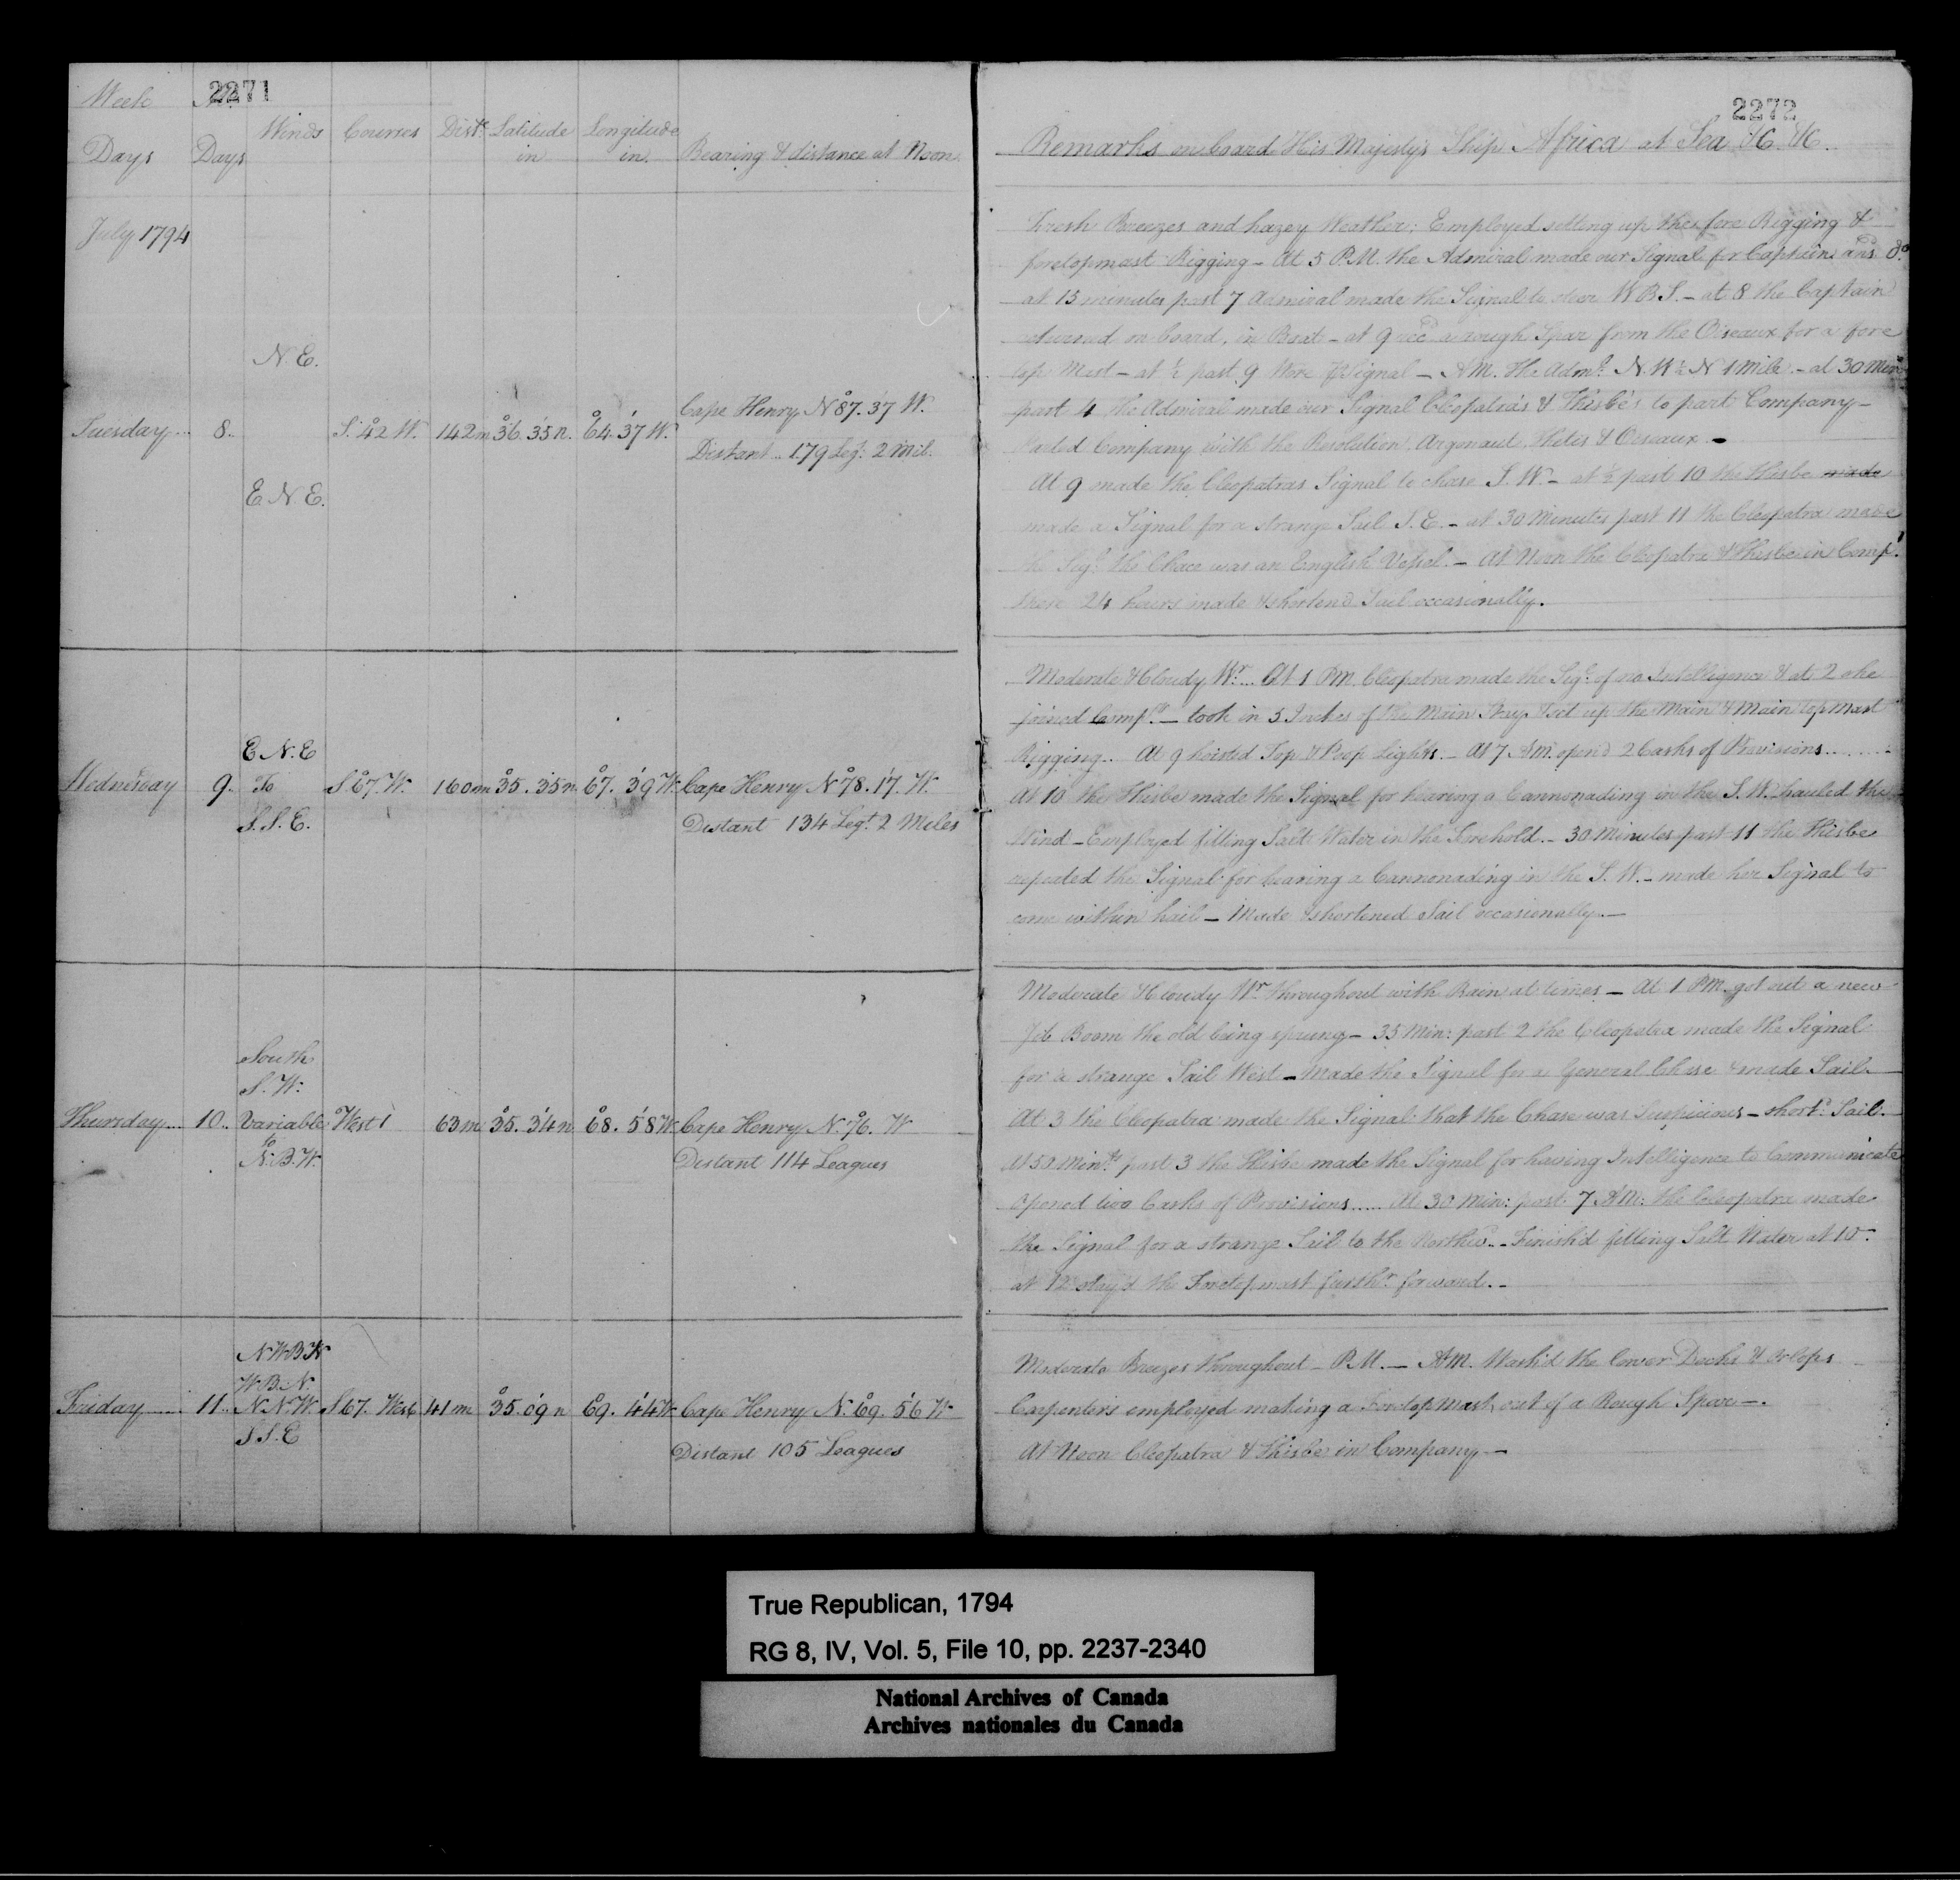 2271
Week No
Days Days Winds Courses Dist.e Latitude in Longitude in Bearing & distance at Noon
July 1794
N.E.
Tuesday 8 S. 42 W. 142 m 36°. 35 n. 64°. 37' W. Cape Henry N 87°. 37' W.
Distant .. 179 Leg.s 2 Mil.
E N E.
E.N.E
Wednesday 9. To S 67 W. 160 m 35°. 35 n 67°. 39' W. Cape Henry N 78°. 17'. W.
S.S.E. Distant 134 Leg.s 2 Miles
South
S.W.
Thursday 10 .. Variable West 63 m 35°. 34' n 68°. 58' W Cape Henry N. 76°. W
to
N.B.W. Distant 114 Leagues
N W B W
W B. N.
Friday 11 .. N.N.W S 67. West 41 m 35°. 09' n 69°. 44' W Cape Henry N. 69°. 56' W
S S. E Distant 105 Leagues
2272
Remarks on board His Majesty's Ship Africa at Sea &c. &c.
Fresh Breezes and hazey Weather: Employed setting up the fore Rigging &
foretopmast Rigging – At 5 P.M. the Admiral made our Signal for Captain ans.d d.o
at 15 minutes past 7 Admiral made the Signal to steer W B S. – at 8 the Captain
returned on board, in Boat – at 9 rec.d a rough Spar from the Oiseaux for a fore
top Mast – at ½ past 9 Wore Signal – A M. the Adm.l N.W ½ N 1 Mile – at 30 Min.
past 4 the Admiral made our Signal Cleopatra's & Thisbe's to part Company –
Parted Company with the Resolution, Argonaut, Thetis & Oiseaux –
At 9 made the Cleopatras Signal to chase S.W. – at ½ past 10 the Thisbe made
made a Signal for a strange Sail S.E. – at 30 Minutes past 11 the Cleopatra made
the Sig.l the Chace was an English Vessel. – At Noon the Cleopatra & Thisbe in Comp.y
these 24 hours made & shortend Sail occasionally.
Moderate & Cloudy W.r ... At 1 PM. Cleopatra made the Sig.l of no Intelligence & at 2 she
joined Comp.y – took in 5 Inches of the Main Stay & set up the Main & Main topmast
Rigging .. At 9 hoisted Top & Poop Lights. – At 7 AM. open'd 2 Casks of Provisions ....
At 10 the Thisbe made the Signal for hearing a Cannonading in the S.W. hauled the
Wind – Employed filling Salt Water in the Forehold. – 30 Minutes past 11 the Thisbe
repeated the Signal for hearing a Cannonading in the S.W. – made her Signal to
come within hail – Made & shortened Sail occasionally. –
Moderate & Cloudy W.r throughout with Rain at times – At 1 PM. got out a new
Jib Boom the old being sprung – 35 Min: past 2 the Cleopatra made the Signal
for a strange Sail West – Made the Signal for a General Chase & made Sail.
At 3 the Cleopatra made the Signal that the Chase was Suspicious – short.d Sail.
At 50 Min.ts past 3 the Thisbe made the Signal for having Intelligence to Communicate
opened two Casks of Provisions ..... At 30 Min: past 7 AM: the Cleopatra made
the Signal for a strange Sail to the Northw.d – Finish'd filling Salt Water at 10.
at 12 stay'd the Foretopmast furth.r forward. –
Moderate Breezes throughout – P.M. – AM. Wash'd the lower Decks & Orlops
Carpenters employed making a Foretopmast, out of a Rough Spar –.
At Noon Cleopatra & Thisbe in Company –
True Republican, 1794
RG 8, IV, Vol. 5, File 10, pp. 2237-2340
National Archives of Canada
Archives nationales du Canada